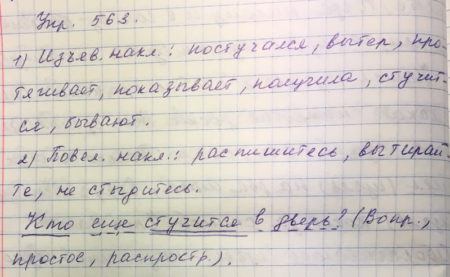 Упр. 563.
1) Изъяв. накл.: постучался, вытер, про-
тягивает, показывает, получила, стучит-
ся, бывают.
2) Повел. накл.: распишитесь, вытирай-
те, не стыдитесь.
Кто еще стучится в дверь? (Вопр.,
простое, распростр.).